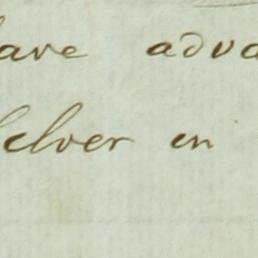 ave adva
elver en